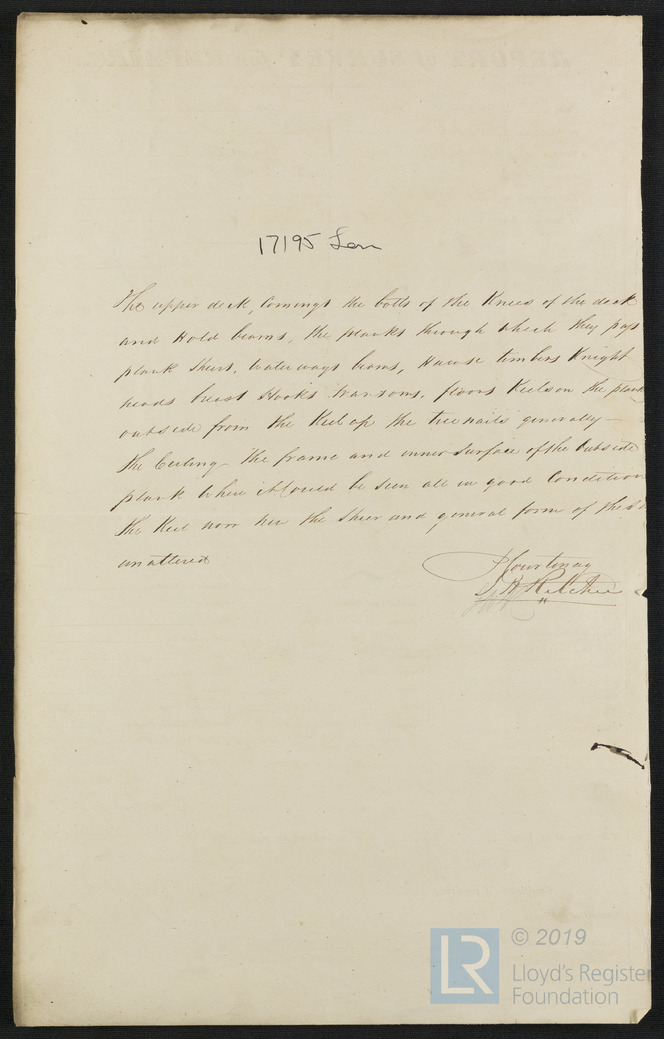 17195 Lon
The upper deck, Comings the bolts of the Knees of the deck
and Hold beams, the planks through which they pass
plank Sheers, Waterways beams, Hawse timbers Knight
heads breast Hooks transoms, floors Keelson the plank
outside from the Keel up the treenails generally —
the Ceiling - the frame and inner Surface of the outside
plank where it could be seen all in good Condition
the Keel now new the Sheer and general form of the
unaltered
Courtenay
J H Ritchie
© 2019
LR
Lloyd's Register
Foundation